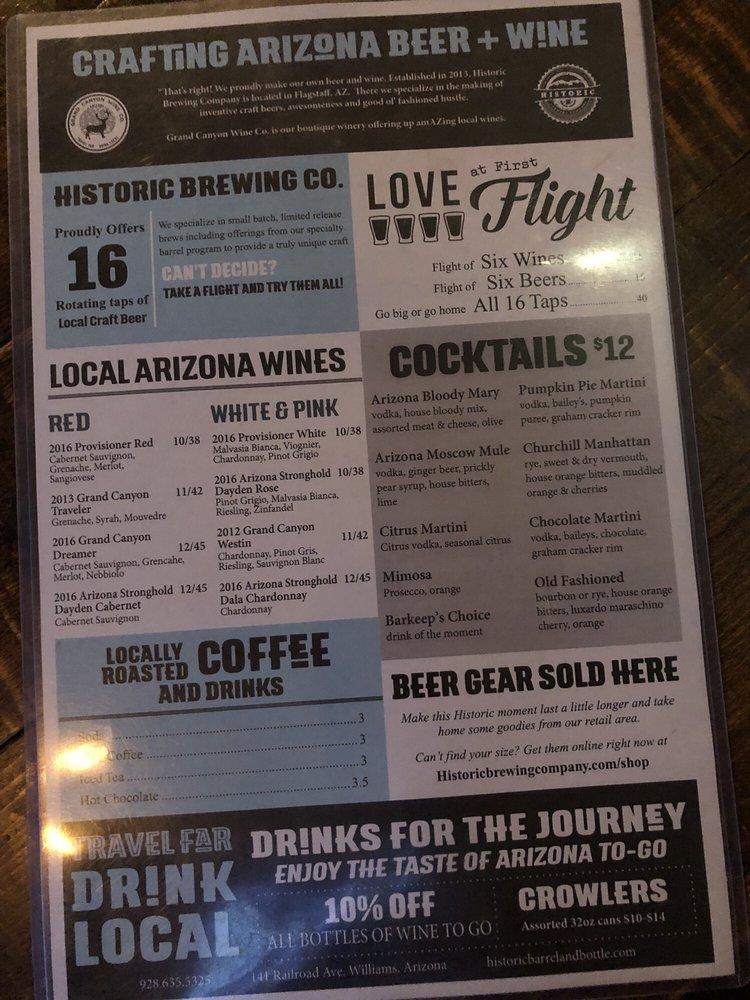 CRAFTING ARIZONA BEER + WINE
"That's right! We proudly make our own beer and wine. Established in 2013, Historic
Brewing Company is located in Flagstaff, AZ. There we specialize in the making of
inventive craft beers, awesomeness and good ol' fashioned hustle.
Grand Canyon Wine Co. is our boutique winery offering up amAZing local wines.
GRAND CANYON WINE CO.
HISTORIC
HISTORIC BREWING CO.
Proudly Offers
16
Rotating taps of
Local Craft Beer
We specialize in small batch, limited release
brews including offerings from our specialty
barrel program to provide a truly unique craft
CAN'T DECIDE?
TAKE A FLIGHT AND TRY THEM ALL!
LOVE at First Flight
Flight of Six Wines
Flight of Six Beers
Go big or go home All 16 Taps 40
LOCAL ARIZONA WINES
RED
2016 Provisioner Red 10/38
Cabernet Sauvignon,
Grenache, Merlot,
Sangiovese
2013 Grand Canyon 11/42
Traveler
Grenache, Syrah, Mouvedre
2016 Grand Canyon
Dreamer 12/45
Cabernet Sauvignon, Grencahe,
Merlot, Nebbiolo
2016 Arizona Stronghold 12/45
Dayden Cabernet
Cabernet Sauvignon
WHITE & PINK
2016 Provisioner White 10/38
Malvasia Bianca, Viognier,
Chardonnay, Pinot Grigio
2016 Arizona Stronghold 10/38
Dayden Rose
Pinot Grigio, Malvasia Bianca,
Riesling, Zinfandel
2012 Grand Canyon
Westin 11/42
Chardonnay, Pinot Gris,
Riesling, Sauvignon Blanc
2016 Arizona Stronghold 12/45
Dala Chardonnay
Chardonnay
COCKTAILS $12
Arizona Bloody Mary
vodka, house bloody mix,
assorted meat & cheese, olive
Arizona Moscow Mule
vodka, ginger beer, prickly
pear syrup, house bitters,
lime
Citrus Martini
Citrus vodka, seasonal citrus
Mimosa
Prosecco, orange
Barkeep's Choice
drink of the moment
Pumpkin Pie Martini
vodka, bailey's, pumpkin
puree, graham cracker rim
Churchill Manhattan
rye, sweet & dry vermouth,
house orange bitters, muddled
orange & cherries
Chocolate Martini
vodka, baileys, chocolate,
graham cracker rim
Old Fashioned
bourbon or rye, house orange
bitters, luxardo maraschino
cherry, orange
LOCALLY
ROASTED COFFEE
AND DRINKS
Soda 3
Coffee 3
Iced Tea 3
Hot Chocolate 3.5
BEER GEAR SOLD HERE
Make this Historic moment last a little longer and take
home some goodies from our retail area.
Can't find your size? Get them online right now at
Historicbrewingcompany.com/shop
TRAVEL FAR
DRINK
LOCAL
DRINKS FOR THE JOURNEY
ENJOY THE TASTE OF ARIZONA TO-GO
10% OFF
ALL BOTTLES OF WINE TO GO
CROWLERS
Assorted 32oz cans $10-$14
928.635.5325
141 Railroad Ave. Williams, Arizona
historicbarrelandbottle.com